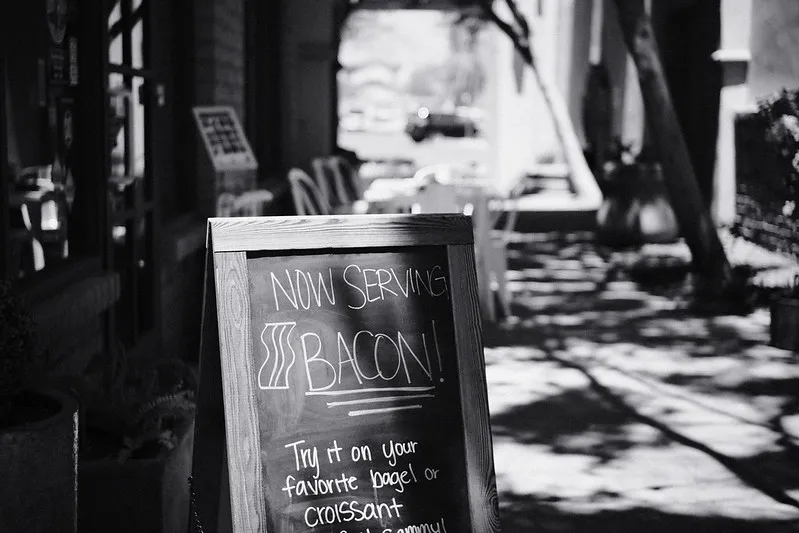 NOW SERVING
BACON!
Try it on your
favorite bagel or
croissant
sammy!